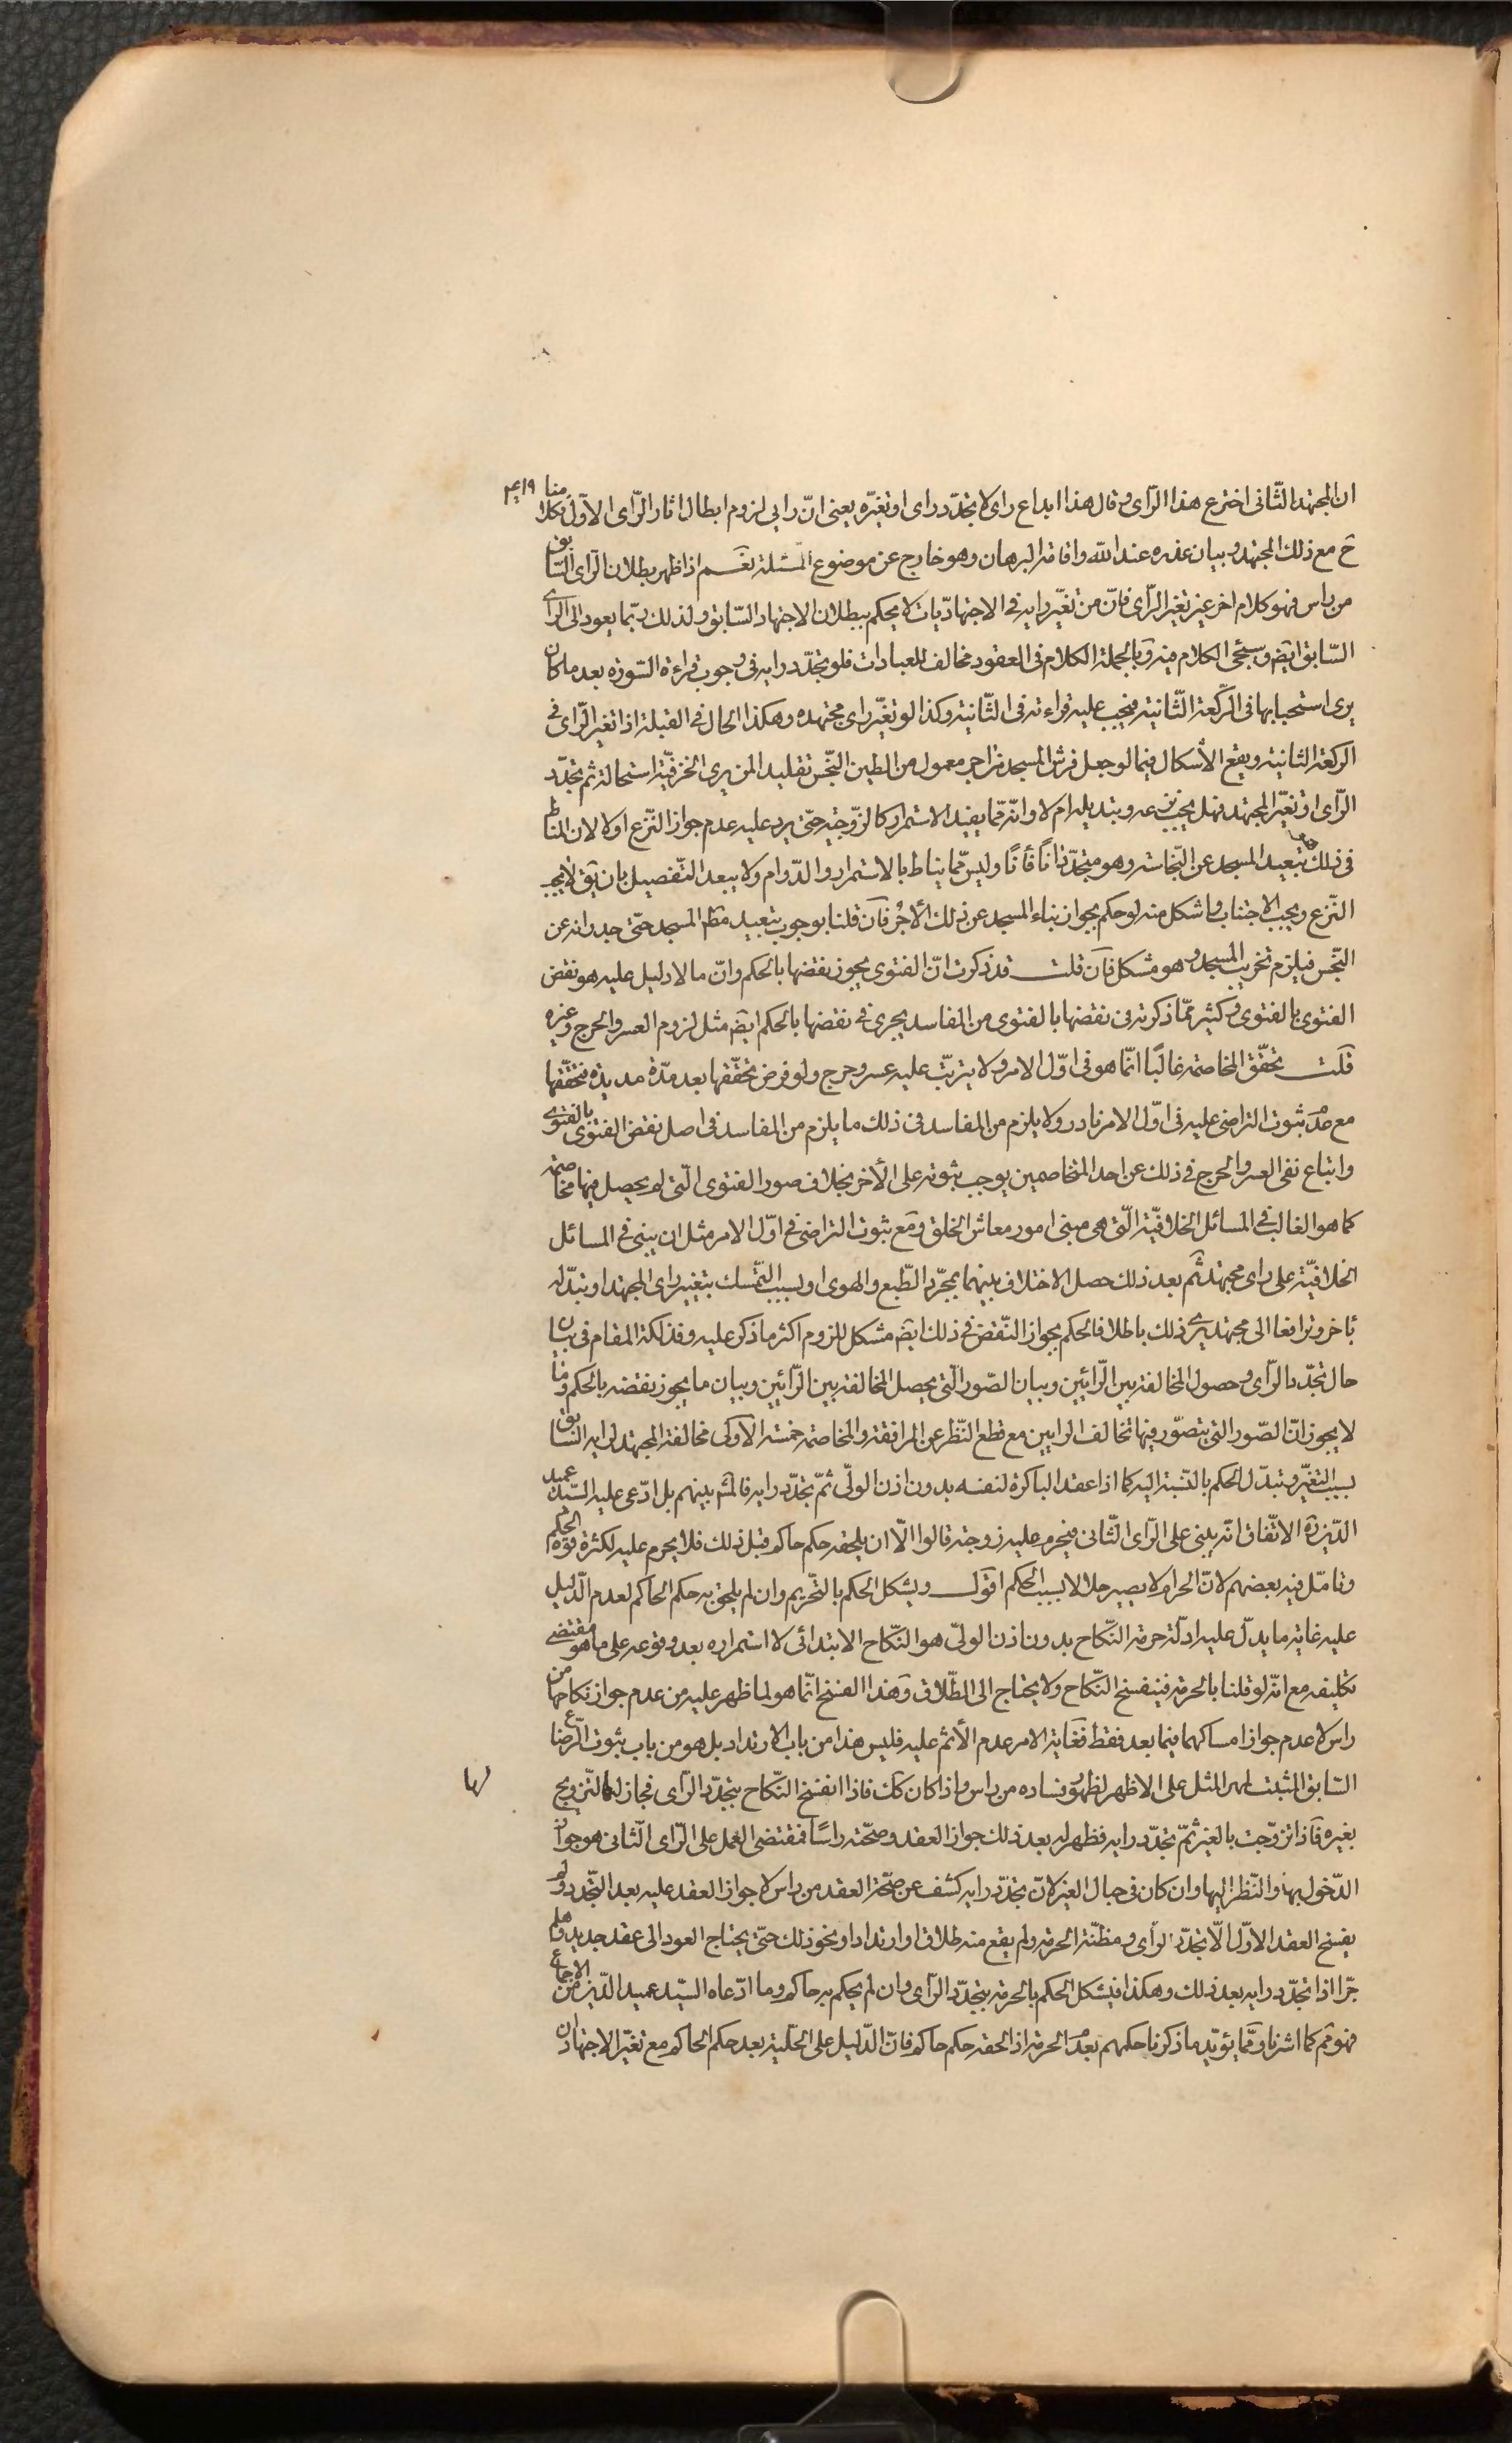 ان المجتهد الثّانی اخترع هذا الرّای و قال هذا ابداع رای لا تجدّد رای او تغیّره یعنی انّ رایی لزوم ابطال اثار الرّای الاوّل فکلامنا ۴۱۹
ح مع ذلک المجتهد و بیان عذره عند الله و اقامة البرهان و هو خارج عن موضوع المسئلة نعم اذا ظهر بطلان الرّای السّابق
من راس فهو کلام اخر غیر تغیّر الرّای فانّ من تغیّر رایه فی الاجتهادیّات لا یحکم ببطلان الاجتهاد السّابق و لذلک ربّما یعود الی الرّای
السّابق ایضا و سیجئ الکلام فیه و بالجملة الکلام فی العقود مخالف للعبادات فلو تجدّد رایه فی وجوب قراءة السّورة بعد ما کان
یری استحبابها فی الرّکعة الثّانیة فیجب علیه قراءته فی الثّانیة و کذا لو تغیّر رای مجتهده و هکذا الحال فی القبلة اذا تغیّر الرّای فی
الرکعة الثانیة و یقع الاشکال فیما لو جعل فرش المسجد من اجر معمول من الطین النّجس تقلیدا لمن یری الخزفیّة استحالة ثم تجدّد
الرّای او تغیّر المجتهد فهل یجب نزعه و تبدیله ام لا و انّه ممّا یفید الاستمرار کالزّوجیّة حتّی یرد علیه عدم جواز النّزع اولا لان المناط
فی ذلک تبعید المسجد عن النّجاسة و هو متجدّد انا فانا و لیس ممّا یناط بالاستمرار و الدّوام و لا یبعد التّفصیل بان یق لا یجب
النّزع و یجب الاجتناب و اشکل منه لو حکم بجواز بناء المسجد عن ذلک الاجر فان قلنا بوجوب تبعید المسجد حتّی جدرانه عن
النّجس فیلزم تخریب المسجد و هو مشکل فان قلت قد ذکرت انّ الفتوی یجوز نقضها بالحکم و انّ ما لا دلیل علیه هو نقض
الفتوی بالفتوی و کثیر ممّا ذکرته فی نقضها بالفتوی من المفاسد یجری فی نقضها بالحکم ایضا مثل لزوم العسر و الحرج و غیره
قلت تحقّق المخاصمة غالبا انّما هو فی اوّل الامر و لا یترتّب علیه عسر و حرج و لو فرض تحقّقها بعد مدّة مدیدة فتحقّقها
مع عدم ثبوت التراضی علیه فی اوّل الامر نادر و لا یلزم من المفاسد فی ذلک ما یلزم من المفاسد فی اصل نقض الفتوی بالفتوی
و اتباع نفی العسر و الحرج فی ذلک عن احد المتخاصمین یوجب ثبوته علی الاخر بخلاف صور الفتوی الّتی لم یحصل فیها مخاصمة
کما هو الغالب فی المسائل الخلافیّة الّتی هی مبنی امور معاش الخلق و مع ثبوت التراضی فی اوّل الامر مثل ان یبنی فی المسائل
الخلافیّة علی رای مجتهد ثم بعد ذلک حصل الاختلاف بینهما بمجرّد الطّبع و الهوی او بسبب التّمسک بتغییر رای المجتهد او تبدّله
باخر و ترافعا الی مجتهد یری ذلک باطلا فالحکم بجواز النّقض فی ذلک ایضا مشکل للزوم اکثر ما ذکر علیه و فذلکة المقام فی بیان
حال تجدّد الرّای و حصول المخالفة بین الرّائیین و بیان الصّور الّتی یحصل المخالفة بین الرّائیین و بیان ما یجوز نقضه بالحکم و ما
لا یجوز انّ الصّور الّتی یتصوّر فیها تخالف الرایین مع قطع النّظر عن المرافعة و المخاصمة خمسة الاولی مخالفة المجتهد لرایه السّابق
بسبب التغیّر و تبدّل الحکم بالنّسبة الیه کما اذا عقد الباکرة لنفسه بدون اذن الولّی ثمّ تجدّد رایه فالمشهور بینهم بل ادّعی علیه السّید عمید
الدّین ره الاتّفاق انّه یبنی علی الرّای الثّانی فیحرم علیه زوجته قالوا الّا ان یلحقه حکم حاکم قبل ذلک فلا یحرم علیه لکثرة قوّة الحکم
و تامّل فیه بعضهم لانّ الحرام لا یصیر حلالا بسبب الحکم اقول و یشکل الحکم بالتّحریم و ان لم یلحق به حکم الحاکم لعدم الدّلیل
علیه غایة ما یدلّ علیه ادلّة حرمة النّکاح بدون اذن الولیّ هو النّکاح الابتدائی لا استمراره بعد وقوعه علی ما هو مقتضی
تکلیفه مع انّه لو قلنا بالحرمة فینفسخ النّکاح و لا یحتاج الی الطّلاق و هذا الفسخ انّما هو لما ظهر علیه من عدم جواز نکاحها من
راس لا عدم جواز امساکها فیما بعد فقط فغایة الامر عدم الاثم علیه فلیس هذا من باب الارتداد بل هو من باب ثبوت الرّضاع
السّابق المثبت لمهر المثل علی الاظهر لظهور فساده من راس و اذا کان کک فاذا انفسخ النّکاح بتجدّد الرّای فجاز لها التّزویج
بغیره فاذا تزوّجت بالغیر ثمّ تجدّد رایه فظهر له بعد ذلک جواز العقد و صحّته راسا فمقتضی العمل علی الرّای الثّانی هو جواز
الدّخول بها و النّظر الیها و ان کان فی حبال الغیر لانّ تجدّد رایه کشف عن صحّة العقد من راس لا جواز العقد علیه بعد التّجدد و لم
یفسخ العقد الاوّل الّا تجدّد الرأی و مظنّة الحرمة و لم یقع منه طلاق او ارتداد او نحو ذلک حتّی یحتاج العود الی عقد جدید و هلم
جرّا اذا تجدّد رایه بعد ذلک و هکذا فیشکل الحکم بالحرمة بتجدّد الرّای و ان لم یحکم به حاکم و ما ادّعاه السیّد عمید الدّین من الاجماع
فهو مم کما اشرنا و ممّا یؤیّد ما ذکرنا حکمهم بعدم الحرمة اذا لحقه حکم حاکم فانّ الدّلیل علی الحلّیة بعد حکم الحاکم مع تغیّر الاجتهاد ان